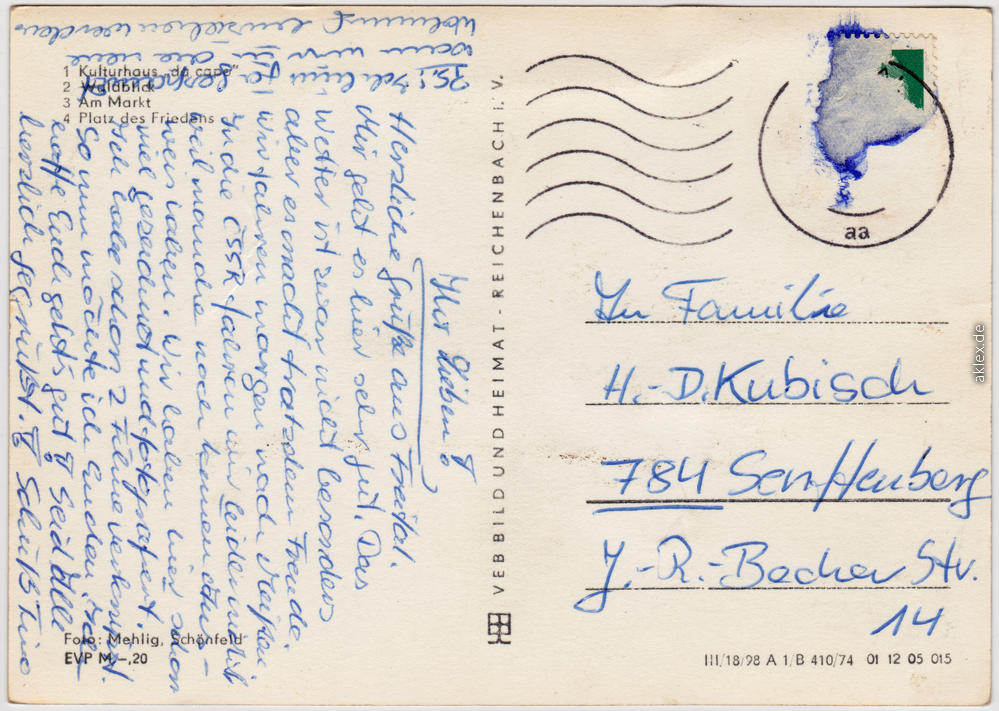 1 Kulturhaus „da capo"
2 Waldblick
3 Am Markt
4 Platz des Friedens
Ihr Lieben!
Herzliche Grüße aus Freital.
Mir geht es hier sehr gut. Das
Wetter ist zwar nicht besonders
aber es macht trotzdem Freude.
Wir fahren morgen nach Meißen
In die ČSSR fahren wir leider nicht
weil manche noch keinen
weis haben. Wir haben hier schon
viel gezeichnet und fotografiert.
Ich habe schon 2 Filme verknipst.
So nun möchte ich Enden. Ich
hoffe Euch geht's gut! Seid alle
herzlich gegrüßt! Schußtino
PS:
wann wir die neue
Wohnung beziehen werden
Foto: Mehlig, Schönfeld
EVP M –,20
VEB BILD UND HEIMAT - REICHENBACH i. V.
aa
An Familie
H.-D. Kubisch
784 Senftenberg
J.-R.-Becher Str.
14
III/18/98 A 1/B 410/74 01 12 05 015
aklex.de